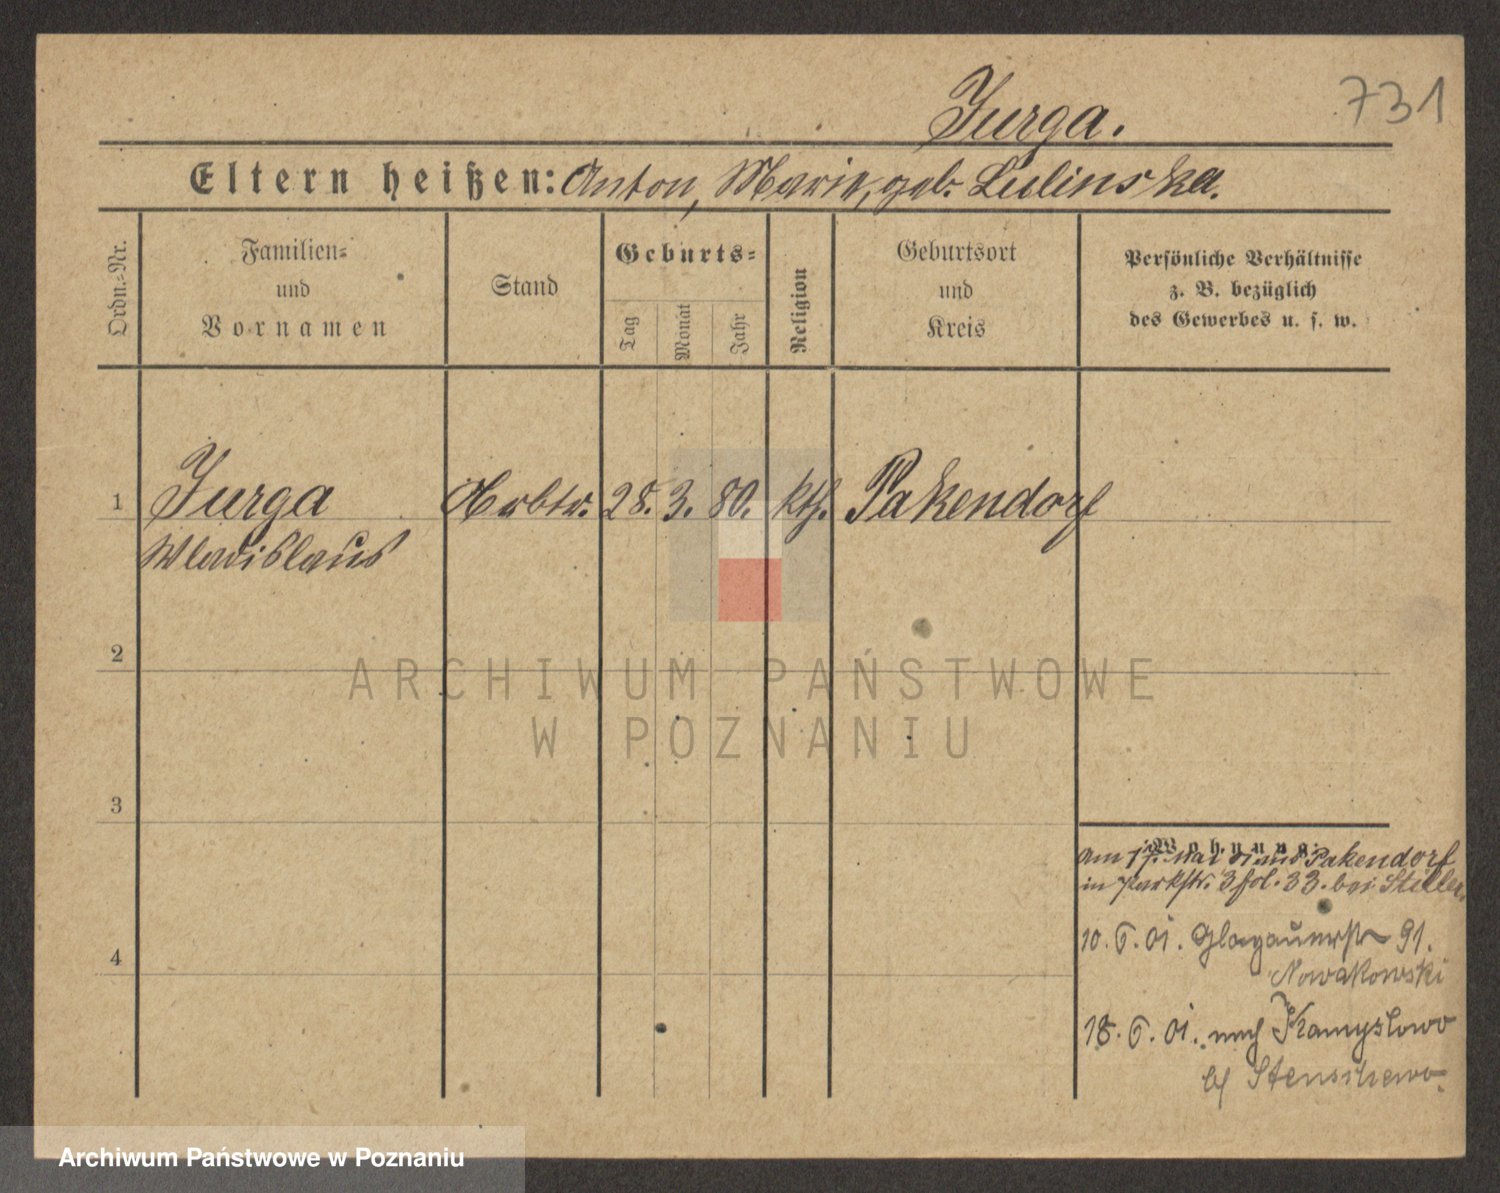 731
Jurga.
Eltern heißen: Anton, Marie, geb. Lulinska.
Ordn.-Nr.
Familien-
und
Vornamen
Stand
Geburts-
Tag
Monat
Jahr
Religion
Geburtsort
und
Kreis
Persönliche Verhältnisse
z. B. bezüglich
des Gewerbes u. s. w.
1 Jurga Arbtr. 28. 3. 80. kth. Pakendorf
Wladislaus
2
ARCHIWUM PAŃSTWOWE
W POZNANIU
3
Wohnung:
Am 17. Mai 01 aus Pakendorf
in Parkstr. 3 fol. 33. bei Steller
4
10. 6. 01. Glogauerstr 91.
Nowakowski
18. 6. 01. nach
b/ Stenschewo.
Archiwum Państwowe w Poznaniu